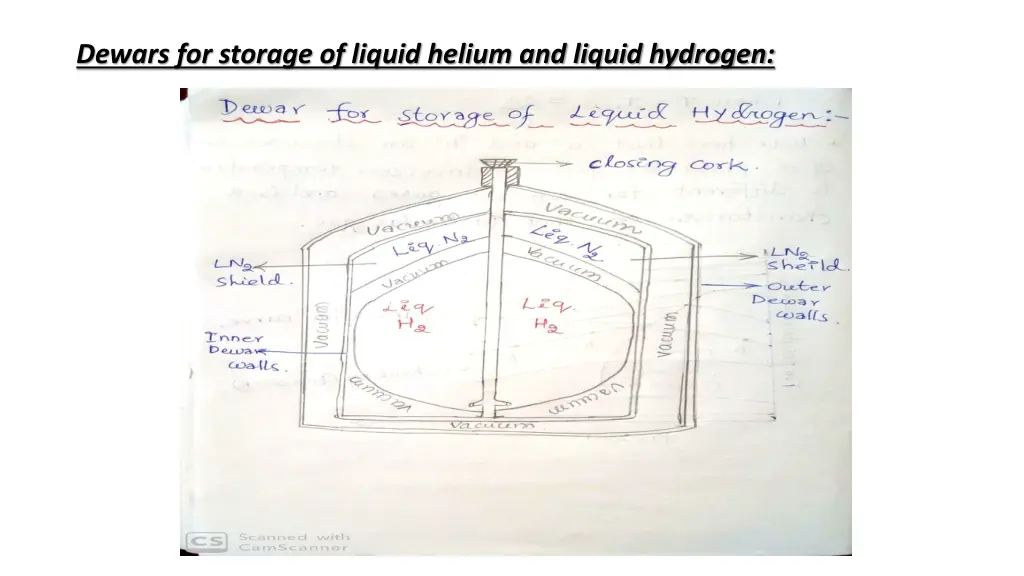 Dewars for storage of liquid helium and liquid hydrogen:
Dewar for storage of Liquid Hydrogen:-
closing cork.
Vacuum
Vacuum
Liq. N2
Liq. N2
Vacuum
Vacuum
LN2
shield.
LN2
sheild.
outer
Dewar
walls.
Liq
H2
Liq.
H2
Vacuum
Vacuum
Inner
Dewar
walls.
vacuum
vacuum
Vacuum
CS Scanned with
CamScanner